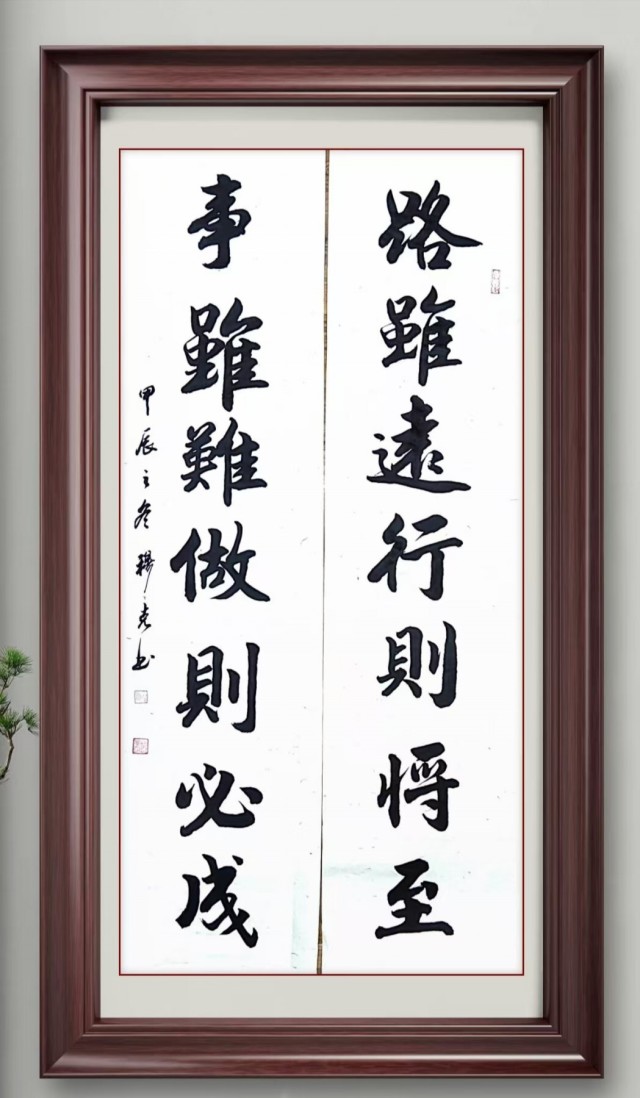 路雖遠行則將至
事雖難做則必成
甲辰之冬穆克书